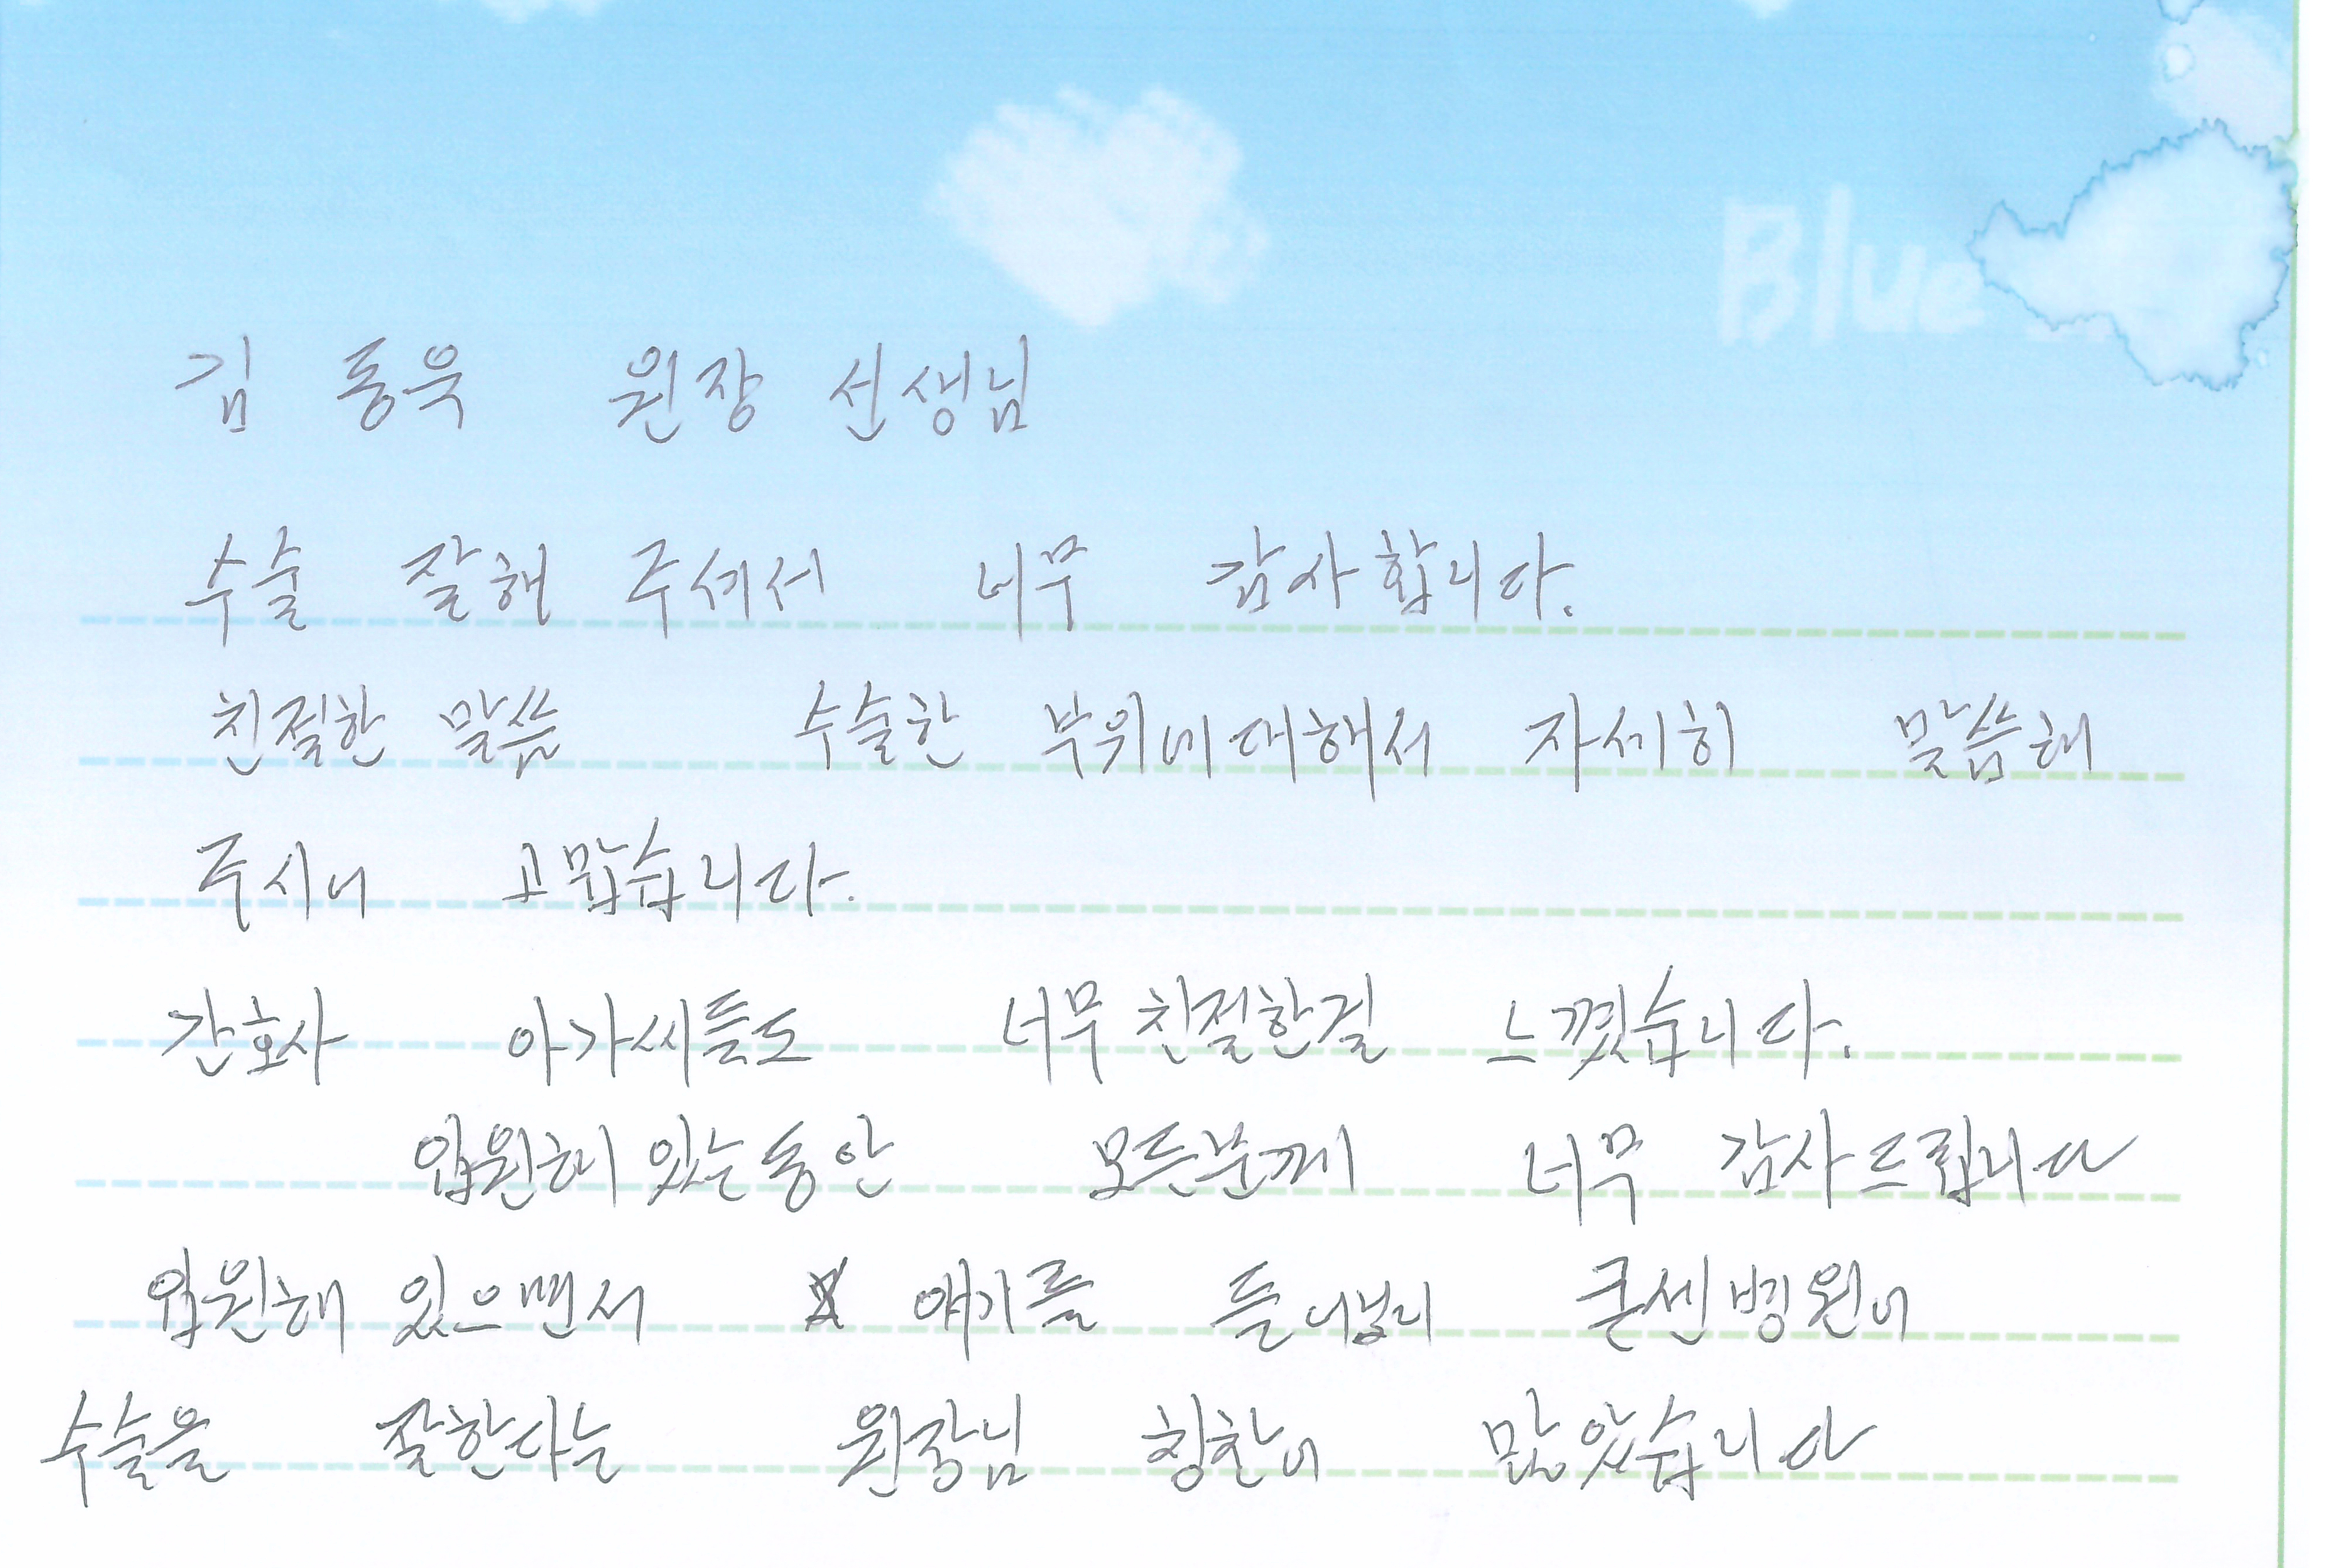 Blue
김 동욱 원장 선생님
수술 잘해 주셔서 너무 감사합니다.
친절한 말씀 수술한 부위에대해서 자세히 말씀해
주시니 고맙습니다.
간호사 아가씨들도 너무 친절한걸 느꼈습니다.
입원해 있는동안 모든분께 너무 감사드립니다
입원해 있으면서 얘기를 큰센병원이
수술을 잘한다는 원장님 칭찬이 많았습니다